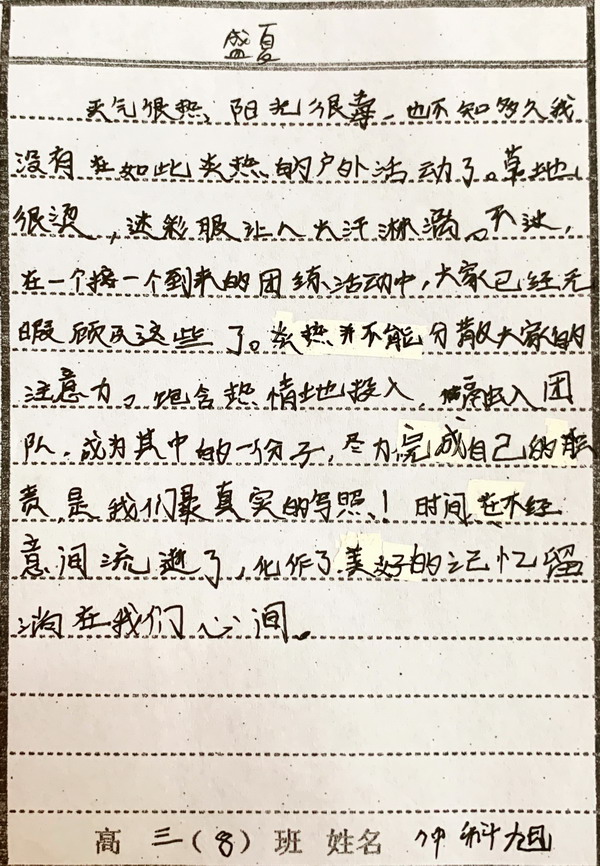 盛夏
天气很热,阳光很毒,也不知多久我
没有在如此炎热的户外活动了。草地
很烫,迷彩服让人大汗淋漓。不过,
在一个接一个到来的团练活动中,大家已经无
暇顾及这些了。炎热并不能分散大家的
注意力。饱含热情地投入,融入团
队,成为其中的一份子,尽力完成自己的职
责,是我们最真实的写照!时间在不经
意间流逝了,化作了美好的记忆留
淌在我们心间。
高三(8)班 姓名 仲科旭